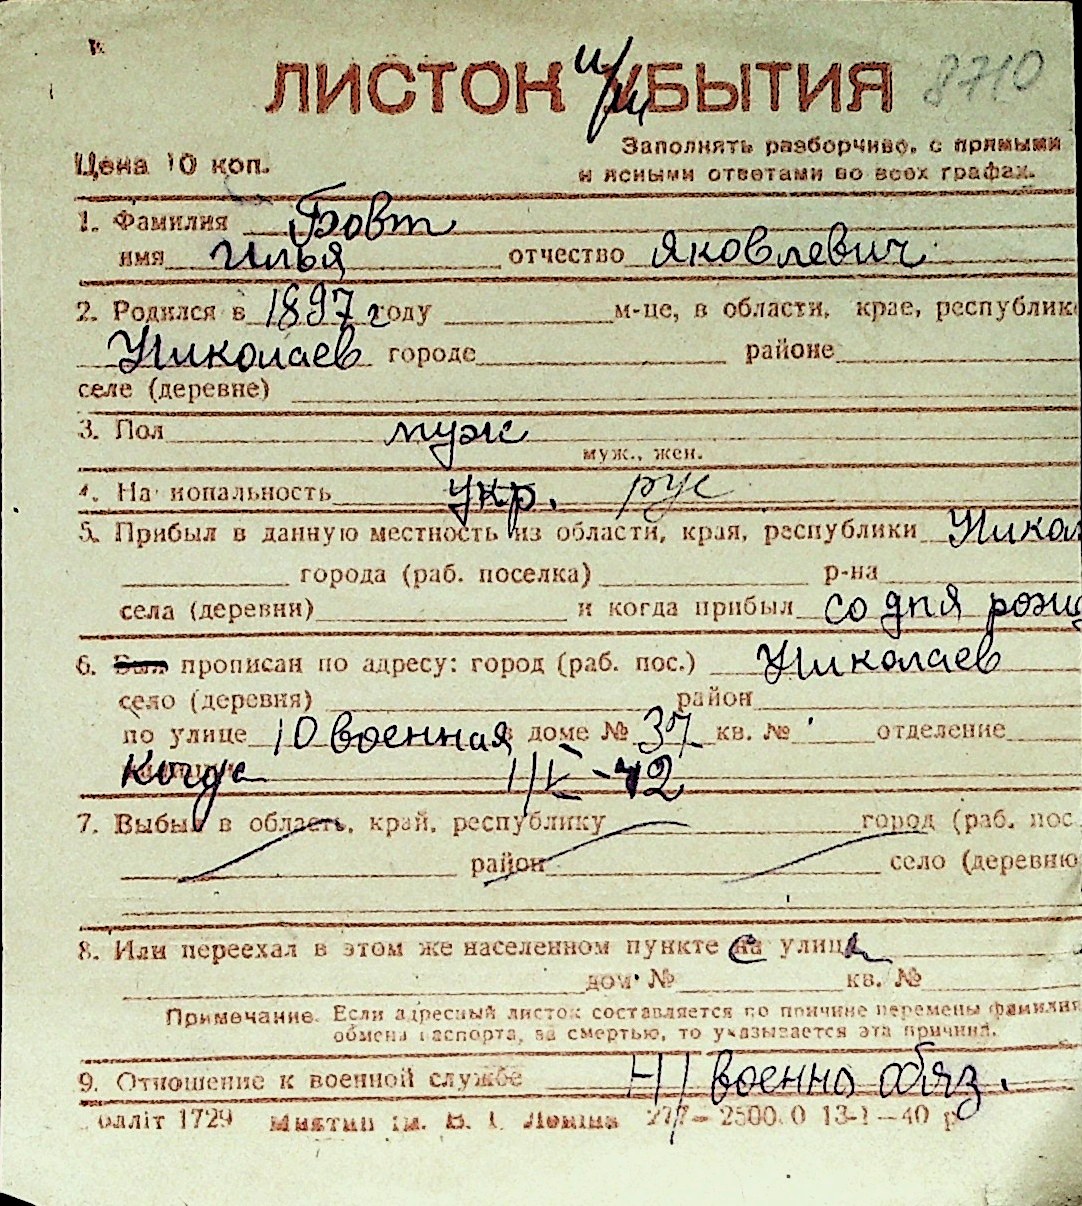 ЛИСТОК УБЫТИЯ 8710
Цена 10 коп.
Заполнять разборчиво, с прямыми
и ясными ответами во всех графах.
1. Фамилия Бовт
имя Илья отчество Яковлевич
2. Родился в 1897 году м-це, в области, крае, республике
Николаев городе районе
селе (деревне)
3. Пол муж
муж., жен.
4. Национальность укр. рус
5. Прибыл в данную местность из области, края, республики Никол
города (раб. поселка) р-на
села (деревни) и когда прибыл со дня рожд
6. Был прописан по адресу: город (раб. пос.) Николаев
село (деревня) район
по улице 10 военная в доме № 37 кв. № отделение
когда 1/IX-42
7. Выбыл в область, край, республику город (раб. пос.
район село (деревню
8. Или переехал в этом же населенном пункте с улицы
дом № кв. №
Примечание. Если адресный листок составляется по причине перемены фамилии
обмена паспорта, за смертью, то указывается эта причина.
9. Отношение к военной службе Н/военно обяз.
олліт 1729 ім. В. І. Леніна 277—2500.0 13-1—40 р